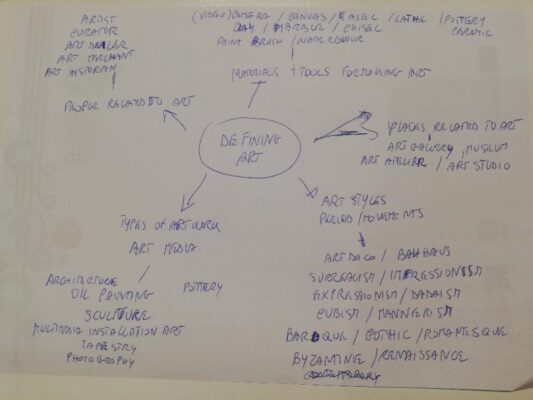 ARTIST
CURATOR
ART DEALER
ART MERCHANT
ART HISTORIAN
PEOPLE RELATED TO ART
(VIDEO) CAMERA / CANVAS / EASEL / LATHE / POTTERY
CLAY / MARBLE / CHISEL CERAMIC
PAINT BRUSH / WATERCOLOUR
MATERIALS + TOOLS FOR MAKING ART
DEFINING
ART
PLACES RELATED TO ART
ART GALLERY, MUSEUM
ART ATELIER / ART STUDIO
TYPES OF ART WORK
ART MEDIA
ARCHITECTURE
OIL PAINTING
POTTERY
SCULPTURE
MULTIMEDIA INSTALLATION ART
TAPESTRY
PHOTOGRAPHY
ART STYLES
PERIOD / MOVEMENTS
ART DECO / BAUHAUS
SURREALISM / IMPRESSIONISM
EXPRESSIONISM / DADAISM
CUBISM / MANNERISM
BAROQUE / GOTHIC / ROMANESQUE
BYZANTINE / RENAISSANCE